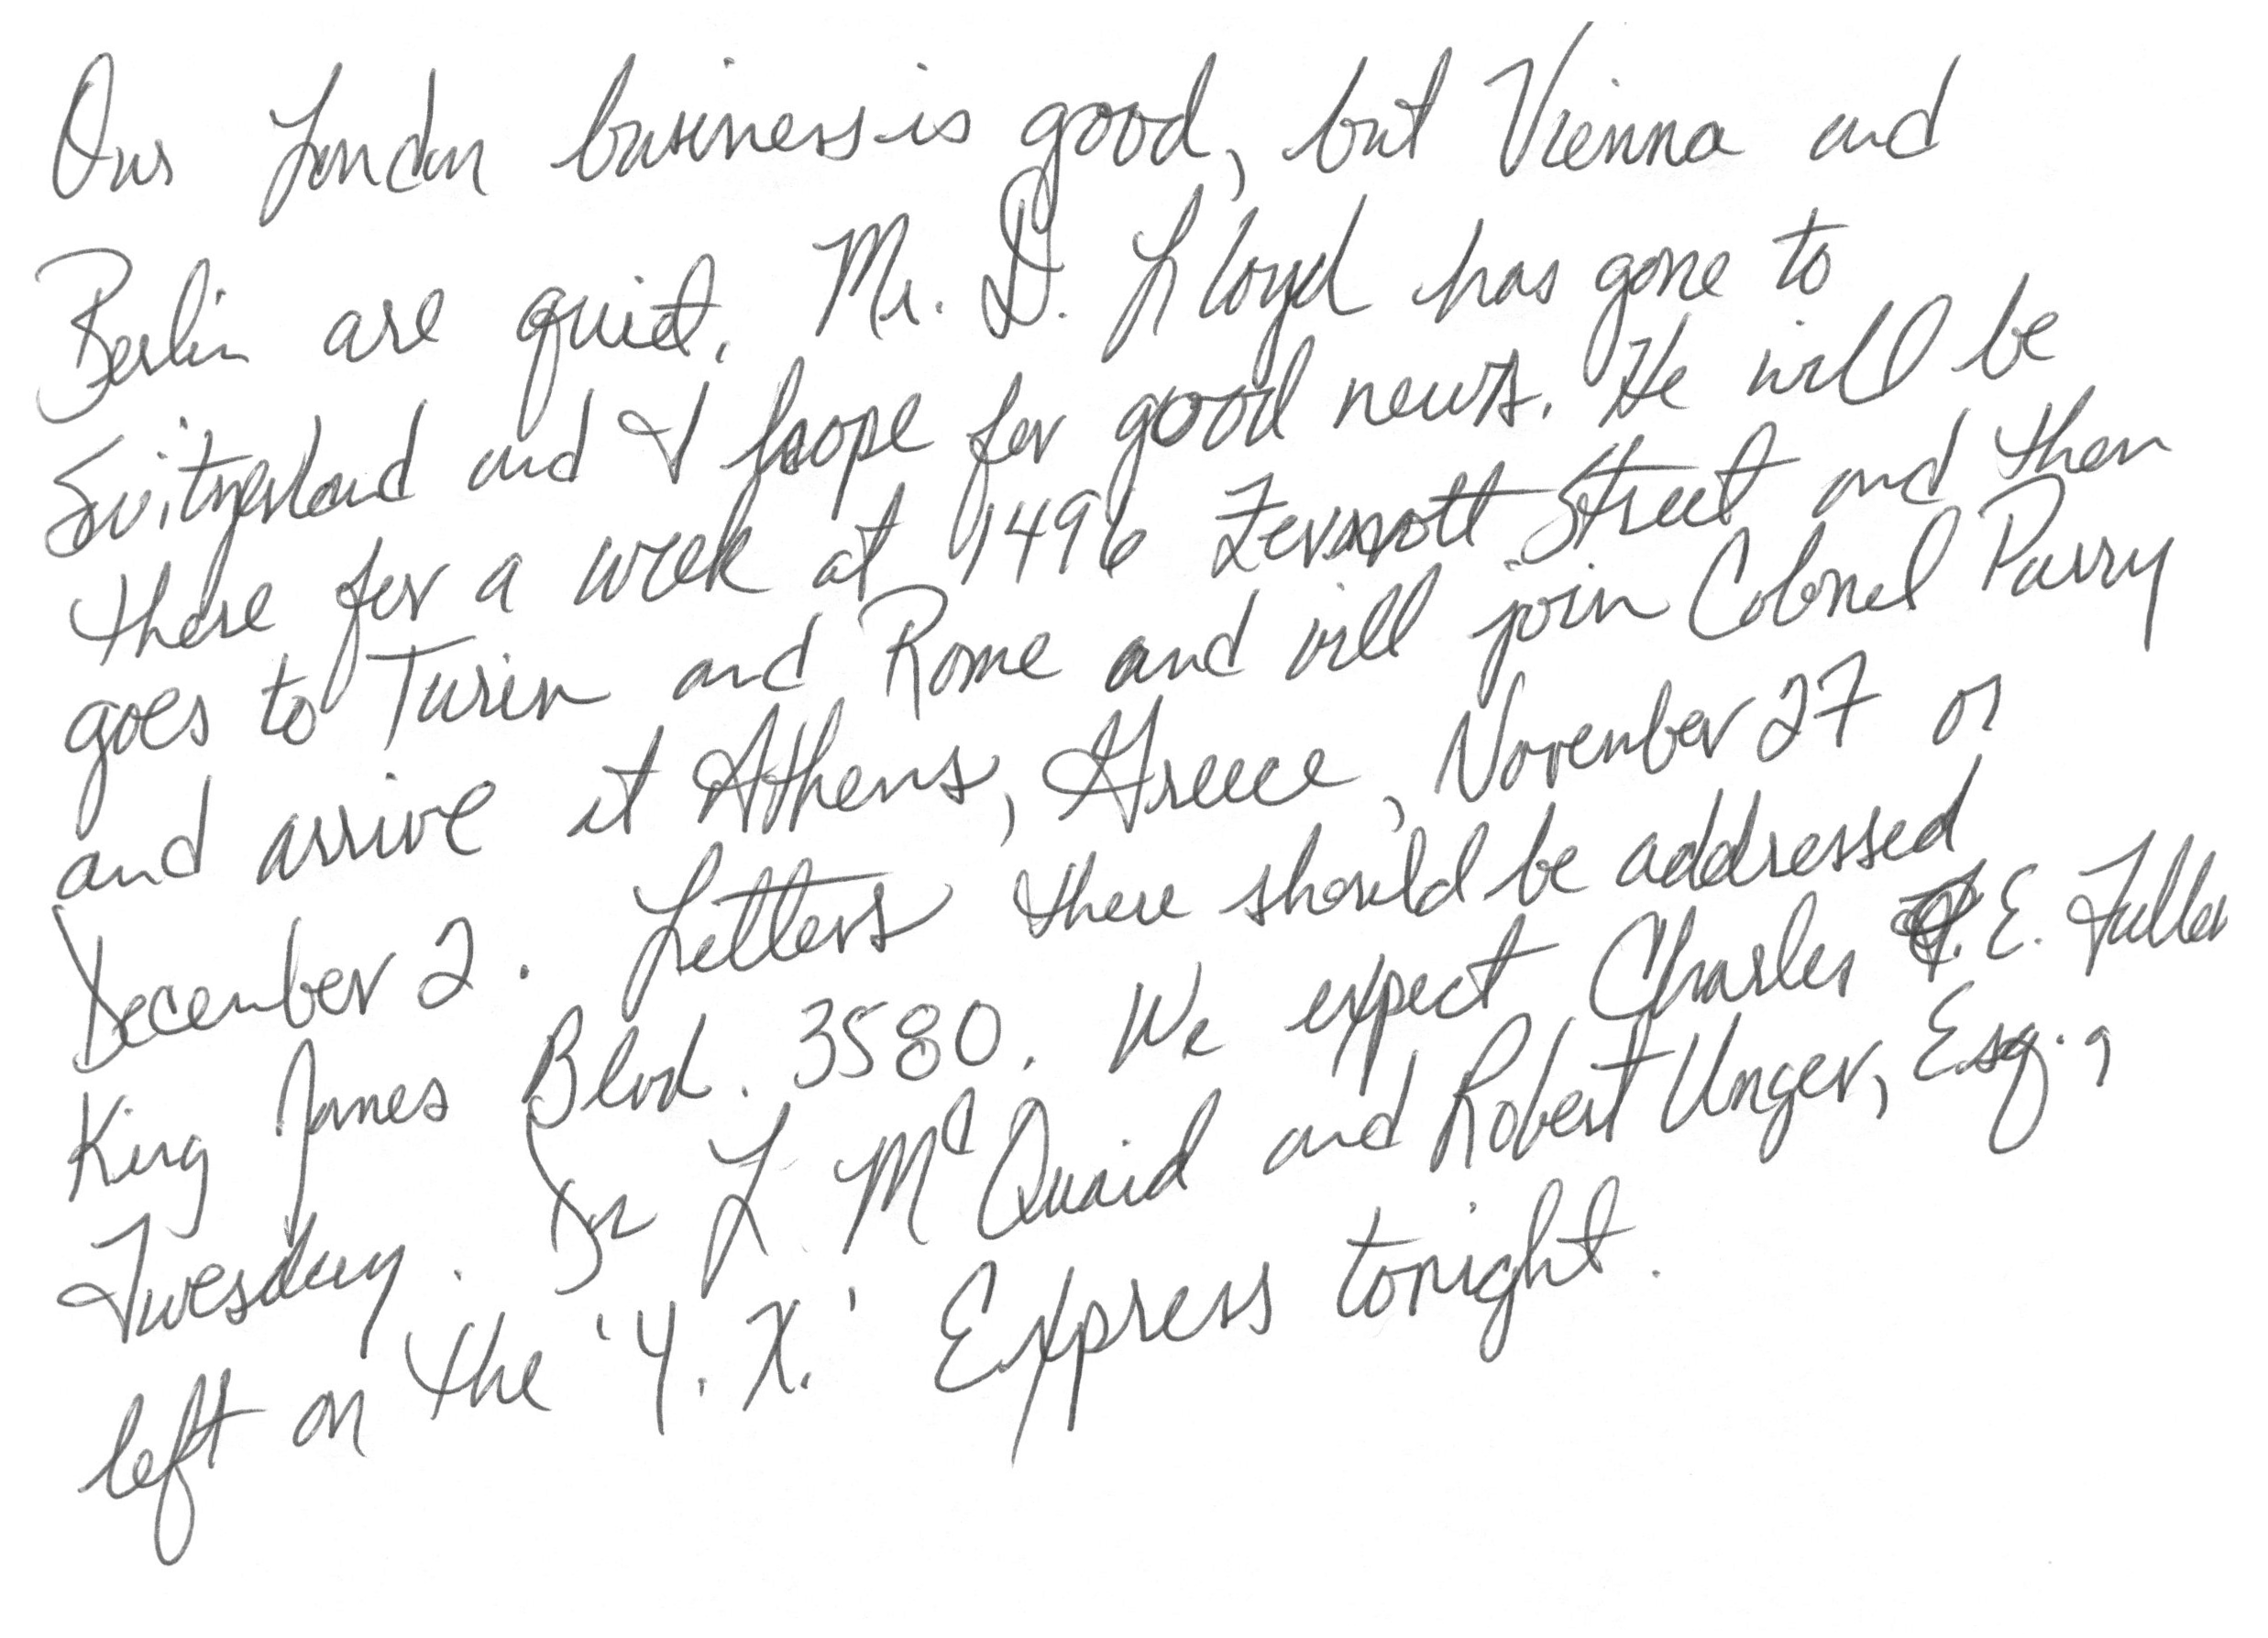 Our London business is good, but Vienna and
Berlin are quiet. Mr. D. Lloyd has gone to
Switzerland and I hope for good news. He will be
there for a week at 1496 Zermott Street and then
goes to Turin and Rome and will join Colonel Parry
and arrive at Athens, Greece, November 27 or
December 2. Letters there should be addressed
King James Blvd. 3580. We expect Charles E. Fuller
Tuesday. Dr L McQuaid and Robert Unger, Esq.,
left on the 'Y. X.' Express tonight.